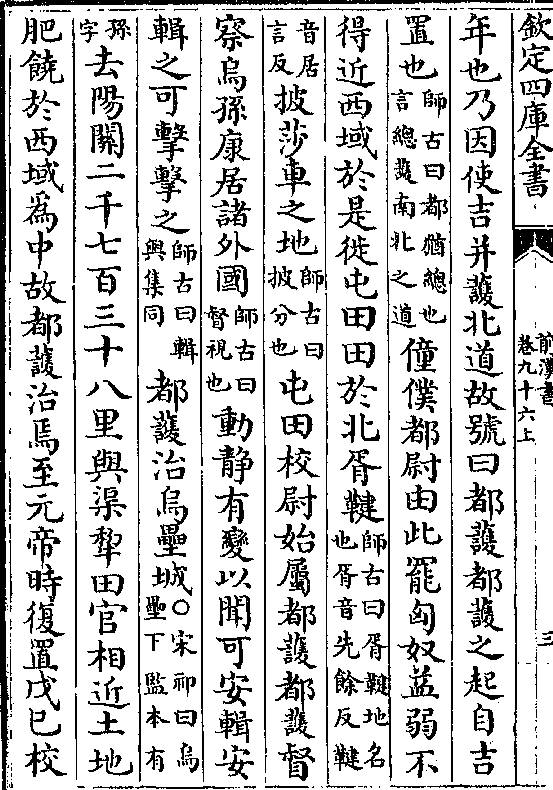 欽定四庫全書
前漢書
卷九十六上
三
年也乃因使吉并護北道故號曰都護都護之起自吉
置也師古曰都猶總也言總護南北之道僮僕都尉由此罷匈奴益弱不
得近西域於是徙屯田田於北胥鞬師古曰胥鞬地名也胥音先餘反鞬
音居言反披莎車之地師古曰披分也屯田校尉始屬都護都護督
察烏孫康居諸外國師古曰督視也動静有變以聞可安輯安
輯之可擊擊之師古曰輯與集同都護治烏壘城○宋祁曰烏壘下監本有
孫字去陽關二千七百三十八里與渠犂田官相近土地
肥饒於西域為中故都護治焉至元帝時復置戊巳校